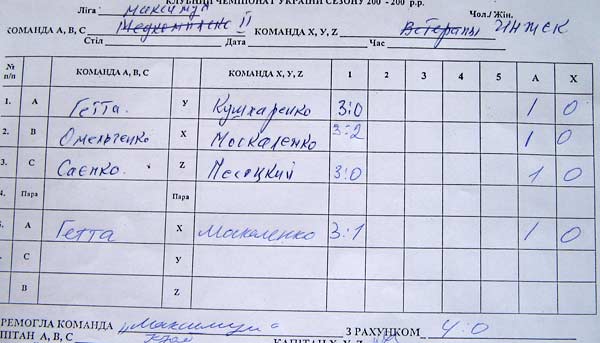 КЛУБНИЙ ЧЕМПІОНАТ УКРАЇНИ СЕЗОНУ 200 -200 р.р.
Ліга Максимум Чол./Жін.
КОМАНДА А, В, С II КОМАНДА X, Y, Z Ветераны ИНЖЕК
Стіл Дата Час
№ п/п КОМАНДА А, В, С КОМАНДА X, Y, Z 1 2 3 4 5 А X
1. А Гетта. У Кушнаренко 3:0 1 0
2. В Омельченко X Москаленко 3:2 1 0
3. С Саенко. Z Песоцкий 3:0 1 0
4. Пара Пара
5. А Гетта X Москаленко 3:1 1 0
С У
В Z
РЕМОГЛА КОМАНДА „Максимум" З РАХУНКОМ 4:0
ПІТАН А, В, С КАПІТАН X, Y, Z